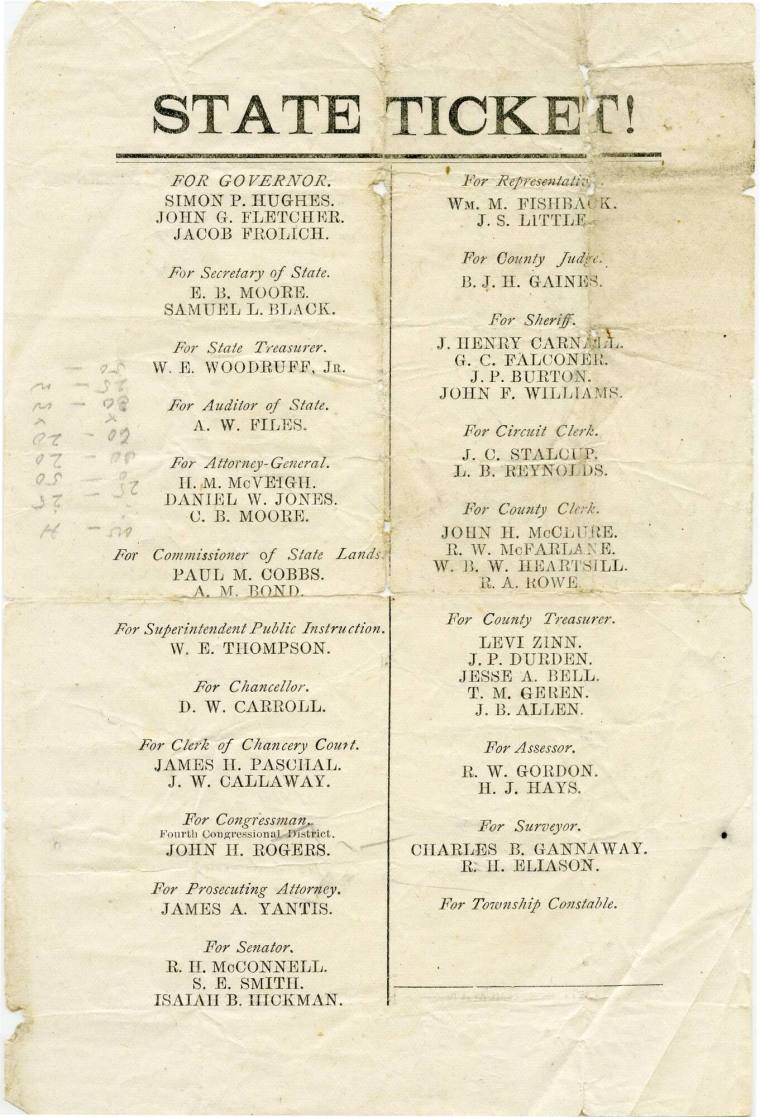 STATE TICKET!
FOR GOVERNOR.
SIMON P. HUGHES.
JOHN G. FLETCHER.
JACOB FROLICH.
For Secretary of State.
E. B. MOORE.
SAMUEL L. BLACK.
For State Treasurer.
W. E. WOODRUFF, Jr.
For Auditor of State.
A. W. FILES.
For Attorney-General.
H. M. McVEIGH.
DANIEL W. JONES.
C. B. MOORE.
For Commissioner of State Lands.
PAUL M. COBBS.
A. M. BOND.
For Superintendent Public Instruction.
W. E. THOMPSON.
For Chancellor.
D. W. CARROLL.
For Clerk of Chancery Court.
JAMES H. PASCHAL.
J. W. CALLAWAY.
For Congressman,
Fourth Congressional District.
JOHN H. ROGERS.
For Prosecuting Attorney.
JAMES A. YANTIS.
For Senator.
R. H. McCONNELL.
S. E. SMITH.
ISAIAH B. HICKMAN.
For Representative.
Wm. M. FISHBACK.
J. S. LITTLE
For County Judge.
B. J. H. GAINES.
For Sheriff.
J. HENRY CARNALL.
G. C. FALCONER.
J. P. BURTON.
JOHN F. WILLIAMS.
For Circuit Clerk.
J. C. STALCUP.
L. B. REYNOLDS.
For County Clerk.
JOHN H. McCLURE.
R. W. McFARLANE.
W. B. W. HEARTSILL.
R. A. ROWE
For County Treasurer.
LEVI ZINN.
J. P. DURDEN.
JESSE A. BELL.
T. M. GEREN.
J. B. ALLEN.
For Assessor.
R. W. GORDON.
H. J. HAYS.
For Surveyor.
CHARLES B. GANNAWAY.
R. H. ELIASON.
For Township Constable.